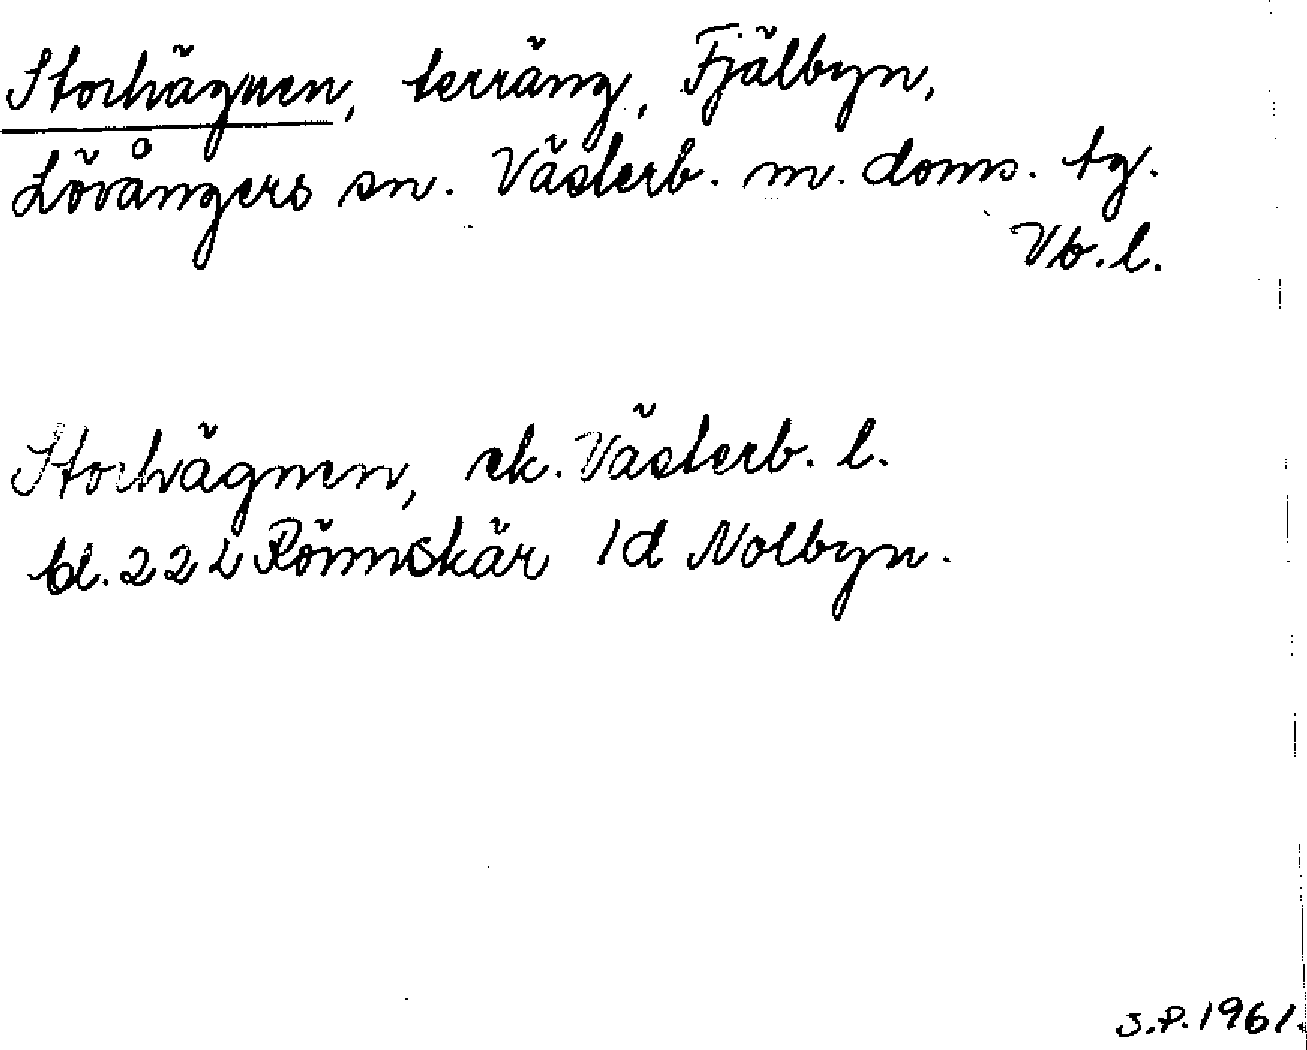 Storhägnen, terräng, Fjälbyn,
Lövångers sn. Västerb. m. doms. tg.
Vb. l.
Storhägnen, ek. Västerb. l.
bl. 22 L Rönnskär 1d Nolbyn.
S.P. 1961.